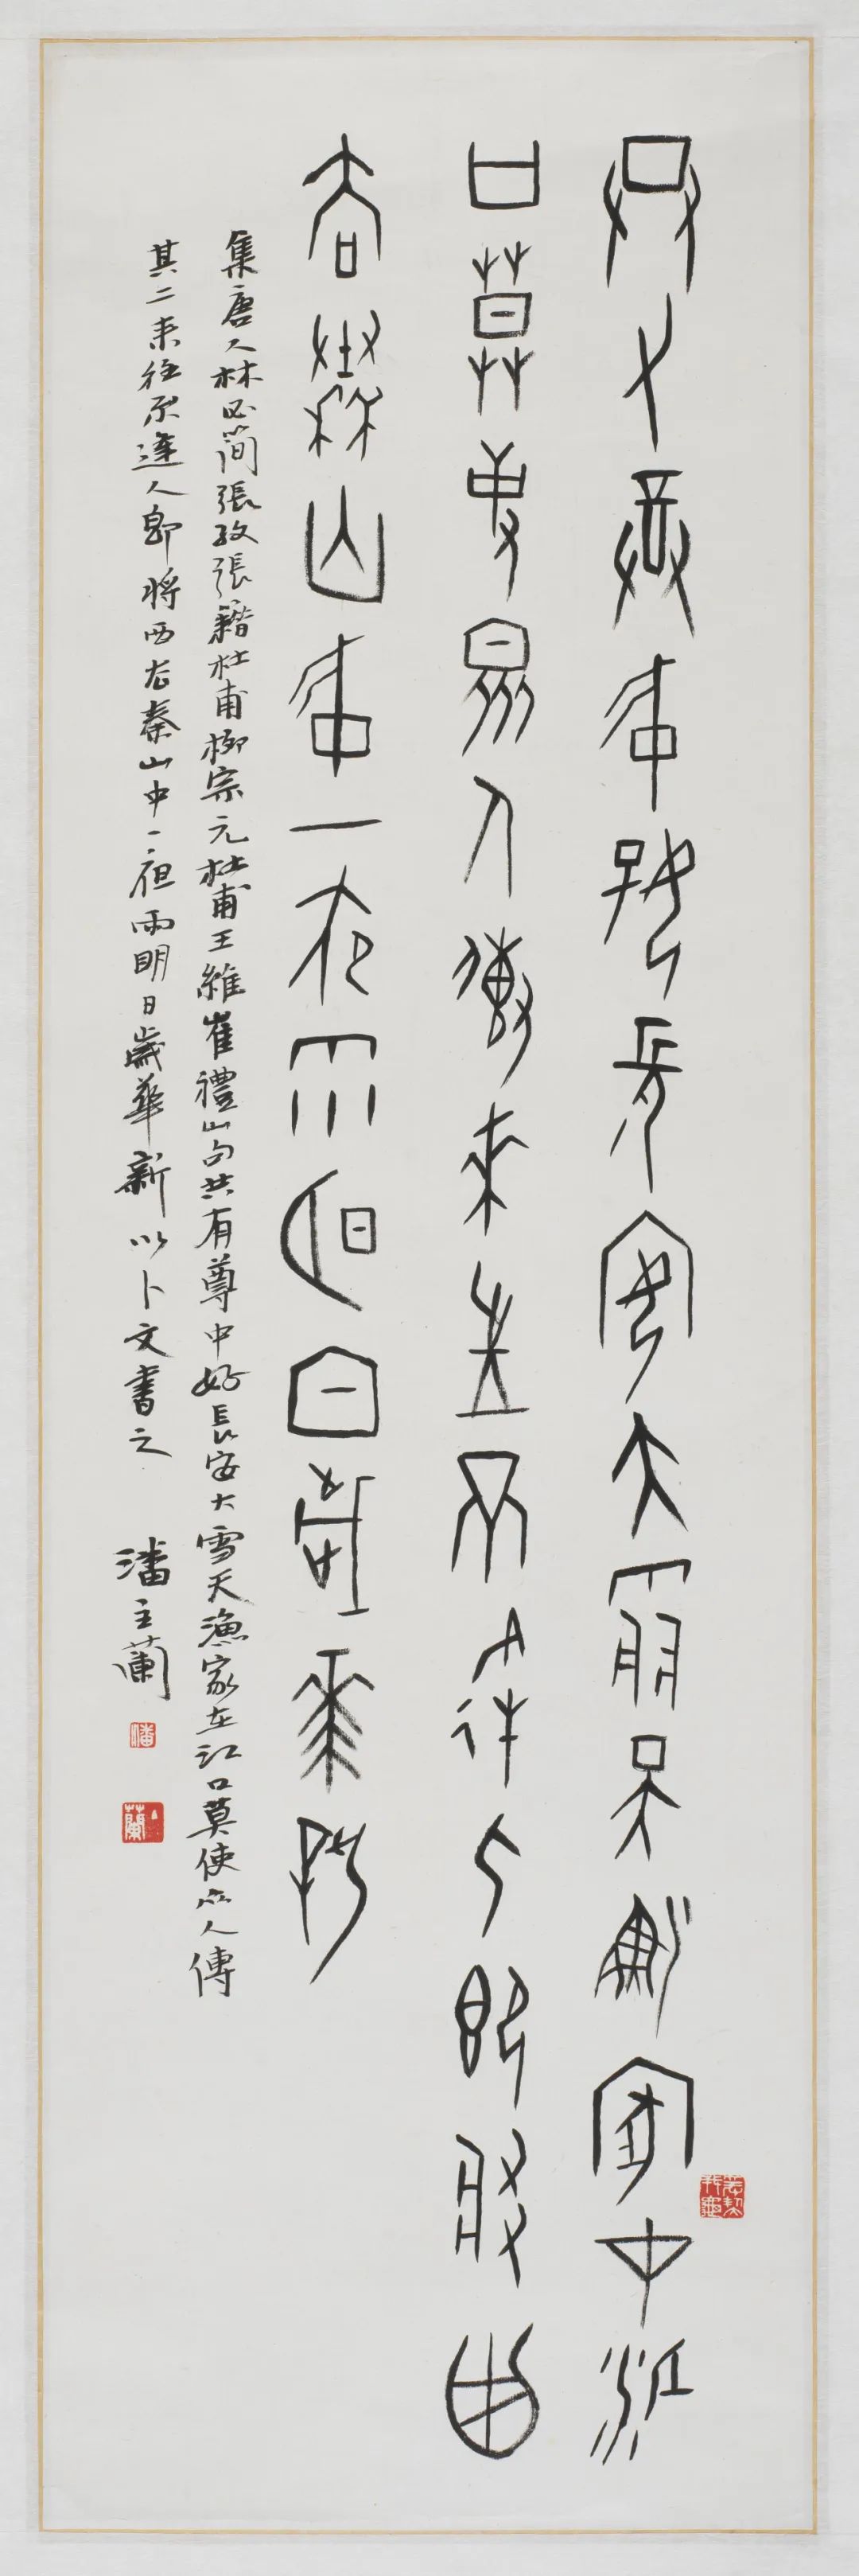 共有尊中好長安大雪天漁家在江
口莫使眾人傳來往不逢人即將西
去秦山中一夜雨明日歲華新
集唐人杜必簡張孜張籍杜甫柳宗元杜甫王維崔禮山句共有尊中好長安大雪天漁家在江口莫使眾人傳
其二來往不逢人即將西去秦山中一夜雨明日歲華新以卜文書之 潘主蘭
潘
主蘭